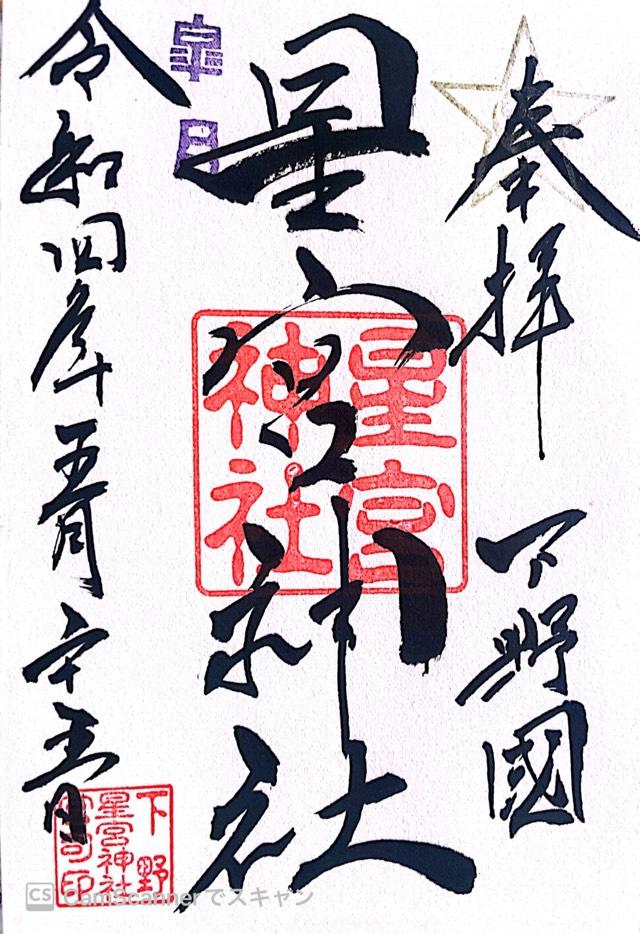 奉拝
下野國
星宮神社
星宮
神社
皐月
令和四年五月二十五日
下野
星宮神社
宮司印
CS CamScannerでスキャン